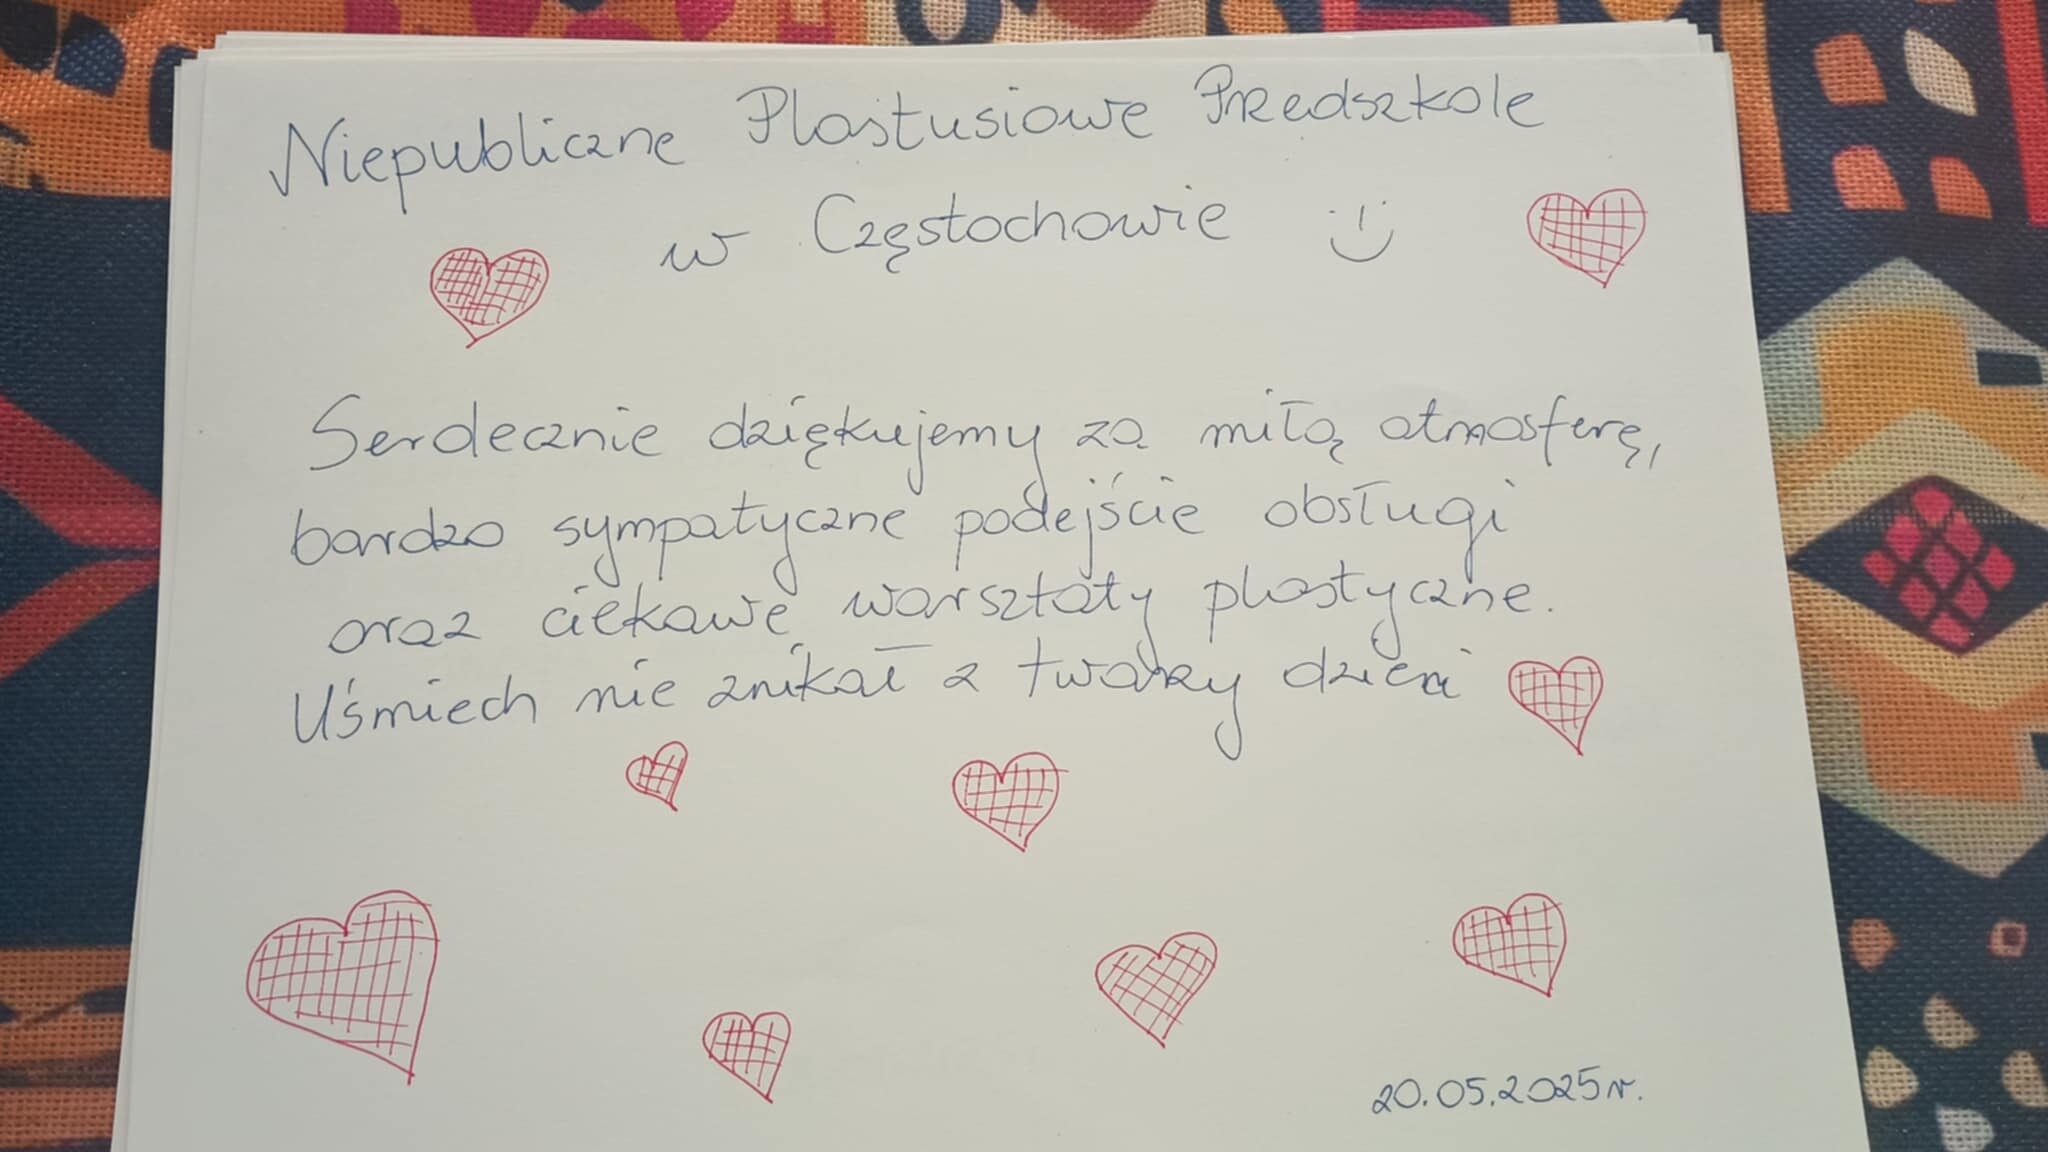 Niepubliczne Plastusiowe Przedszkole
w Częstochowie
Serdecznie dziękujemy za miłą atmosferę,
bardzo sympatyczne podejście obsługi
oraz ciekawe warsztaty plastyczne.
Uśmiech nie znikał z twarzy dzieci
20.05.2025r.